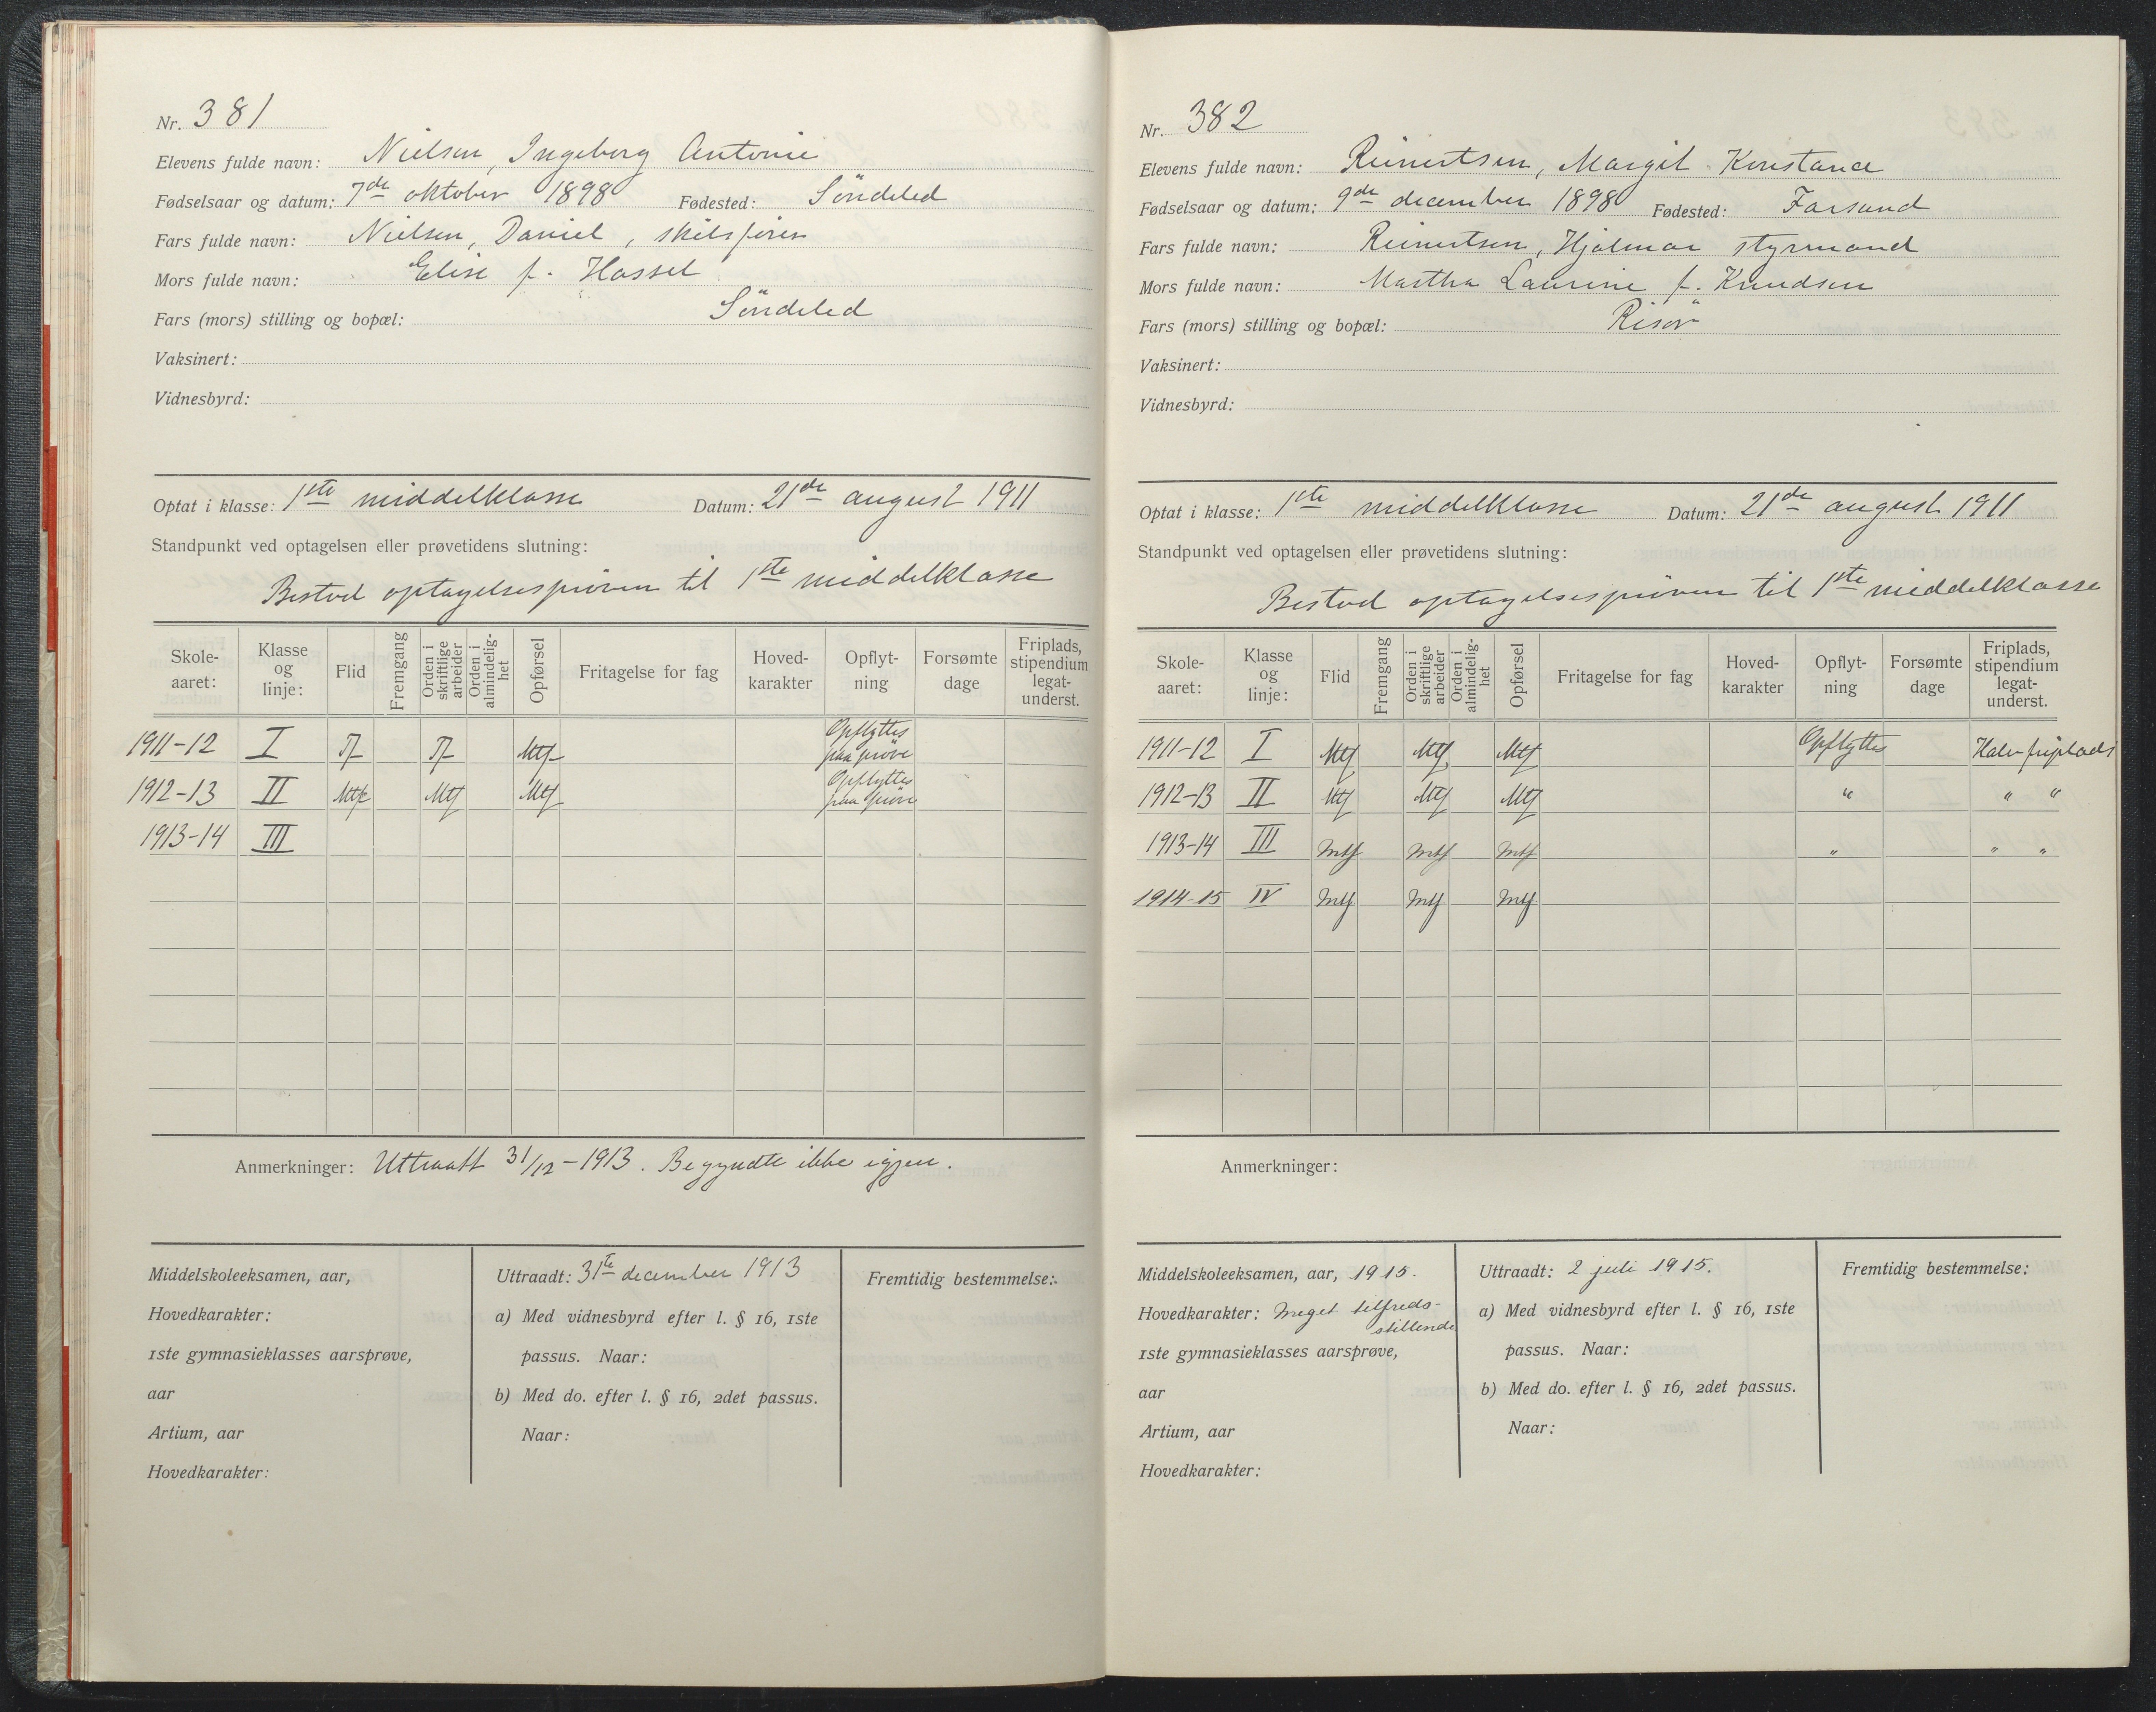 Nr. 381
Elevens fulde navn: Nielsen, Ingeborg Antonie
Fødselsaar og datum: 7de oktober 1898 Fødested: Söndeled
Fars fulde navn: Nielsen, Daniel, skibsförer
Mors fulde navn: Elise f. Hassel
Fars (mors) stilling og bopæl: Söndeled
Vaksinert:
Vidnesbyrd:
Optat i klasse: 1ste middelklasse Datum: 21de august 1911
Standpunkt ved optagelsen eller prøvetidens slutning:
Bestod optagelsespröven til 1ste middelklasse
Skole-aaret: Klasse og linje: Flid Fremgang Orden i skriftlige arbeider Orden i almindelig-het Opførsel Fritagelse for fag Hoved-karakter Opflyt-ning Forsømte dage Friplads, stipendium legat-underst.
1911-12 I Tf Tf Mtf Opflyttes paa pröve
1912-13 II Mtf Mtf Mtf Opflyttes paa pröve
1913-14 III
Anmerkninger: Uttraatt 31/12-1913. Begyndte ikke igjen.
Middelskoleeksamen, aar,
Hovedkarakter:
1ste gymnasieklasses aarsprøve,
aar
Artium, aar
Hovedkarakter:
Uttraadt: 31te december 1913
a) Med vidnesbyrd efter l. § 16, 1ste
passus. Naar:
b) Med do. efter l. § 16, 2det passus.
Naar:
Fremtidig bestemmelse:
Nr. 382
Elevens fulde navn: Reinertsen, Margit Konstance
Fødselsaar og datum: 9de december 1898 Fødested: Farsund
Fars fulde navn: Reinertsen, Hjalmar styrmand
Mors fulde navn: Martha Laurine f. Knudsen
Fars (mors) stilling og bopæl: Risör
Vaksinert:
Vidnesbyrd:
Optat i klasse: 1ste middelklasse Datum: 21de august 1911
Standpunkt ved optagelsen eller prøvetidens slutning:
Bestod optagelsespröven til 1ste middelklasse
Skole-aaret: Klasse og linje: Flid Fremgang Orden i skriftlige arbeider Orden i almindelig-het Opførsel Fritagelse for fag Hoved-karakter Opflyt-ning Forsømte dage Friplads, stipendium legat-underst.
1911-12 I Mtf Mtf Mtf Opflyttes Halv friplads
1912-13 II Mtf Mtf Mtf " " "
1913-14 III Mtf Mtf Mtf " " "
1914-15 IV Mtf Mtf Mtf
Anmerkninger:
Middelskoleeksamen, aar, 1915.
Hovedkarakter: Meget tilfreds-
stillende
1ste gymnasieklasses aarsprøve,
aar
Artium, aar
Hovedkarakter:
Uttraadt: 2 juli 1915.
a) Med vidnesbyrd efter l. § 16, 1ste
passus. Naar:
b) Med do. efter l. § 16, 2det passus.
Naar:
Fremtidig bestemmelse: